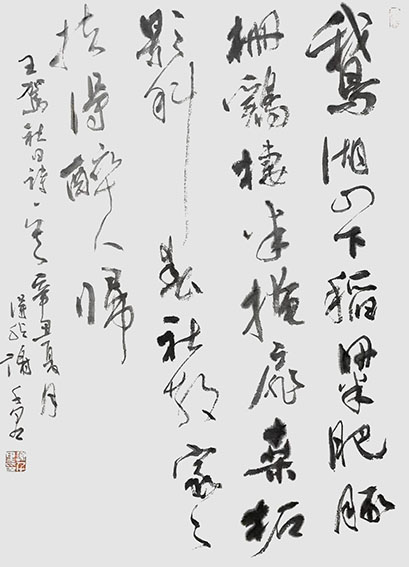 鵝湖山下稻粱肥豚
栅鷄棲半掩扉桑柘
影斜春社散家々
扶得醉人歸
王駕社日詩一首辛丑夏月